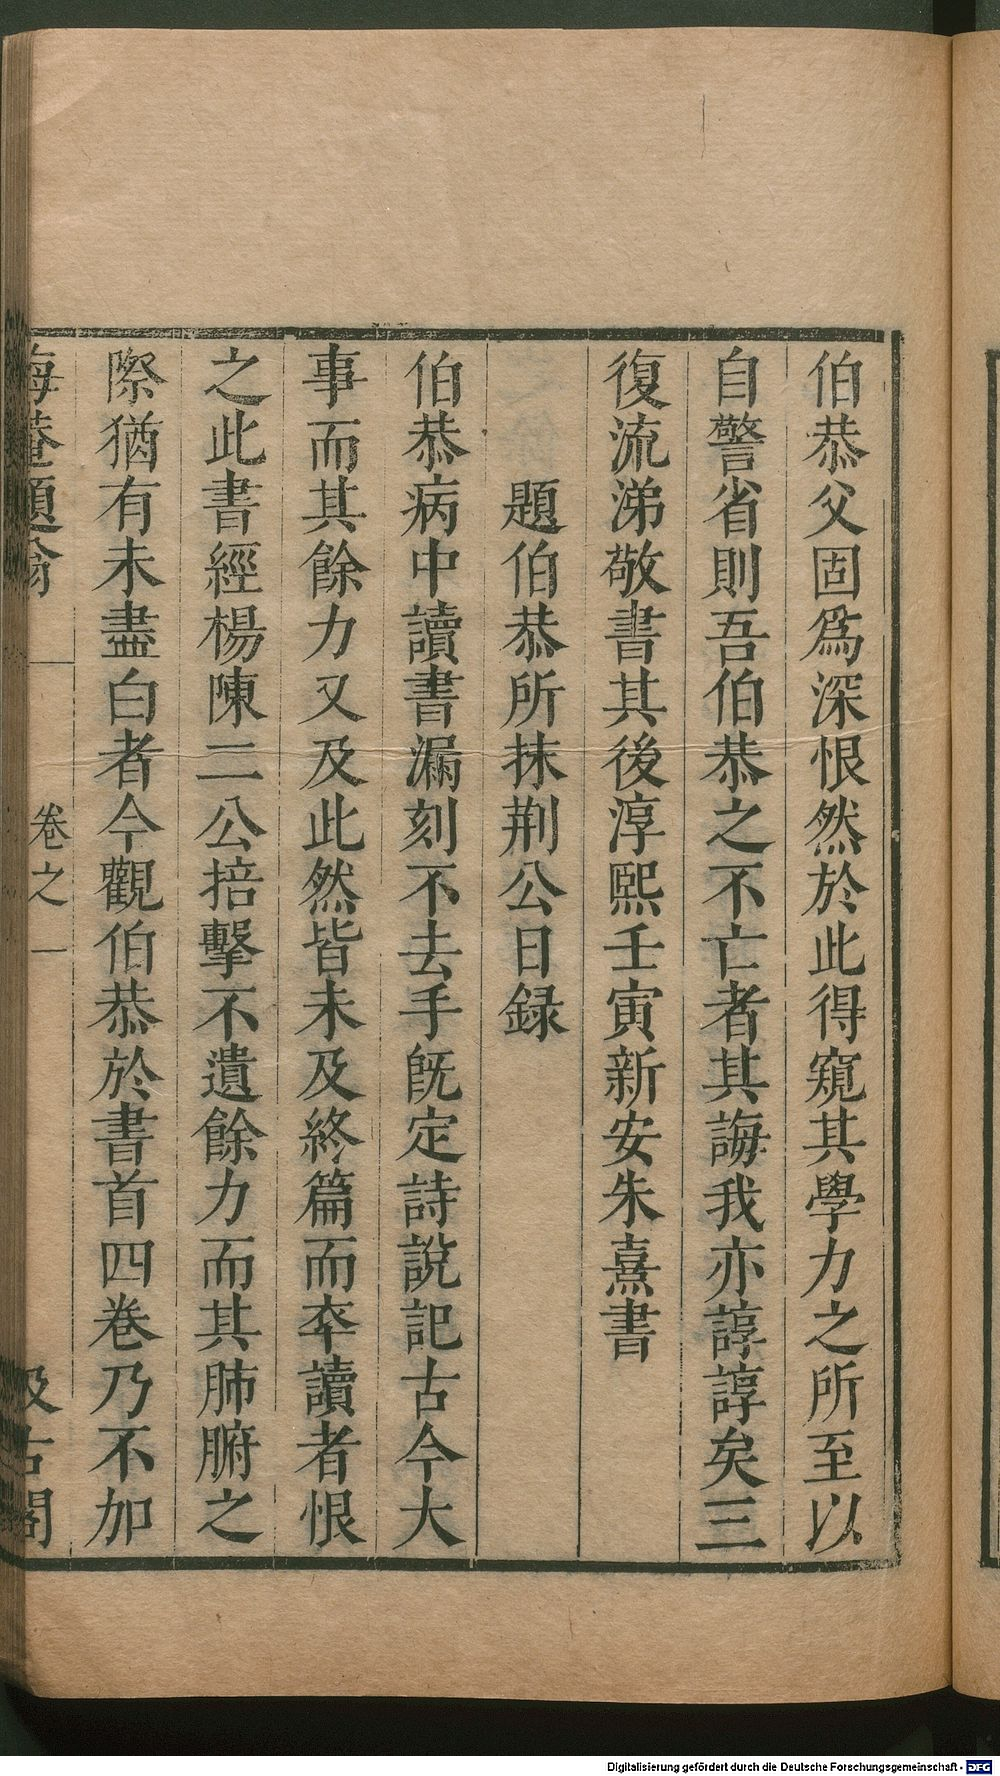 伯恭父固爲深恨然於此得窺其學力之所至以
自警省則吾伯恭之不亡者其誨我亦諄諄矣三
復流涕敬書其後淳熙壬寅新安朱熹書
題伯恭所抹荆公日録
伯恭病中讀書漏刻不去手旣定詩說記古今大
事而其餘力又及此然皆未及終篇而卒讀者恨
之此書經楊陳二公掊擊不遺餘力而其肺腑之
際猶有未盡白者今觀伯恭於書首四巻乃不加
晦菴題跋 卷之一 汲古閣
Digitalisierung gefördert durch die Deutsche Forschungsgemeinschaft - DFG